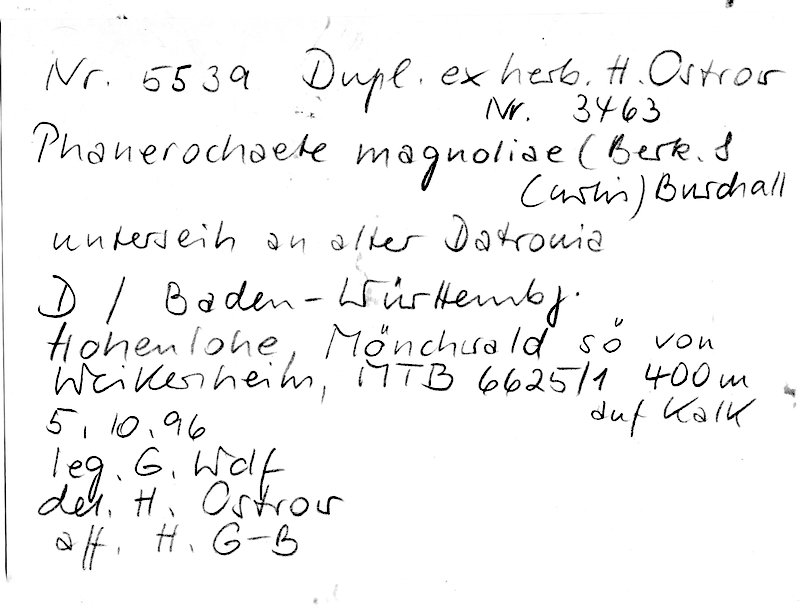 Nr. 5539 Dupl. ex herb. H. Ostrow
Nr. 3463
Phanerochaete magnoliae (Berk. &
Curtis) Burdsall
unterseits an alter Datronia
D / Baden-Württembg.
Hohenlohe, Mönchwald sö von
Weikersheim, MTB 6625/1 400m
auf Kalk
5.10.96
leg. G.
det. H. Ostrow
H. G-B